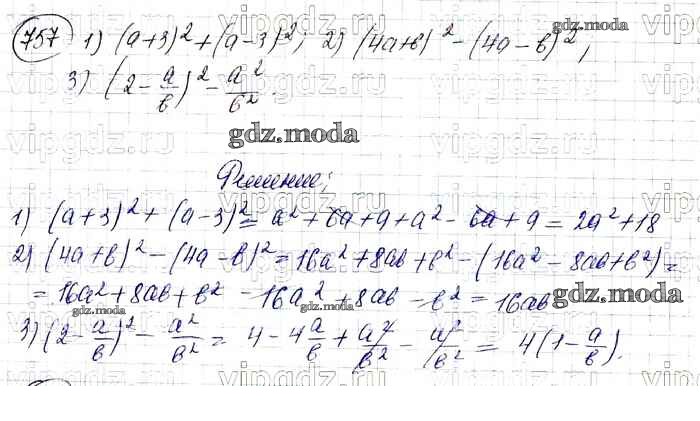 757 1) (a+3)² + (a-3)²; 2) (4a+b)² - (4a-b)²;
3) (2 - a/b)² - a²/b².
gdz.moda
Решение;
1) (a+3)² + (a-3)² = a² + 6a + 9 + a² - 6a + 9 = 2a² + 18
2) (4a+b)² - (4a-b)² = 16a² + 8ab + b² - (16a² - 8ab + b²) =
= 16a² + 8ab + b² - 16a² + 8ab - b² = 16ab
3) (2 - a/b)² - a²/b² = 4 - 4 a/b + a²/b² - a²/b² = 4(1 - a/b).
vipgdz.ru